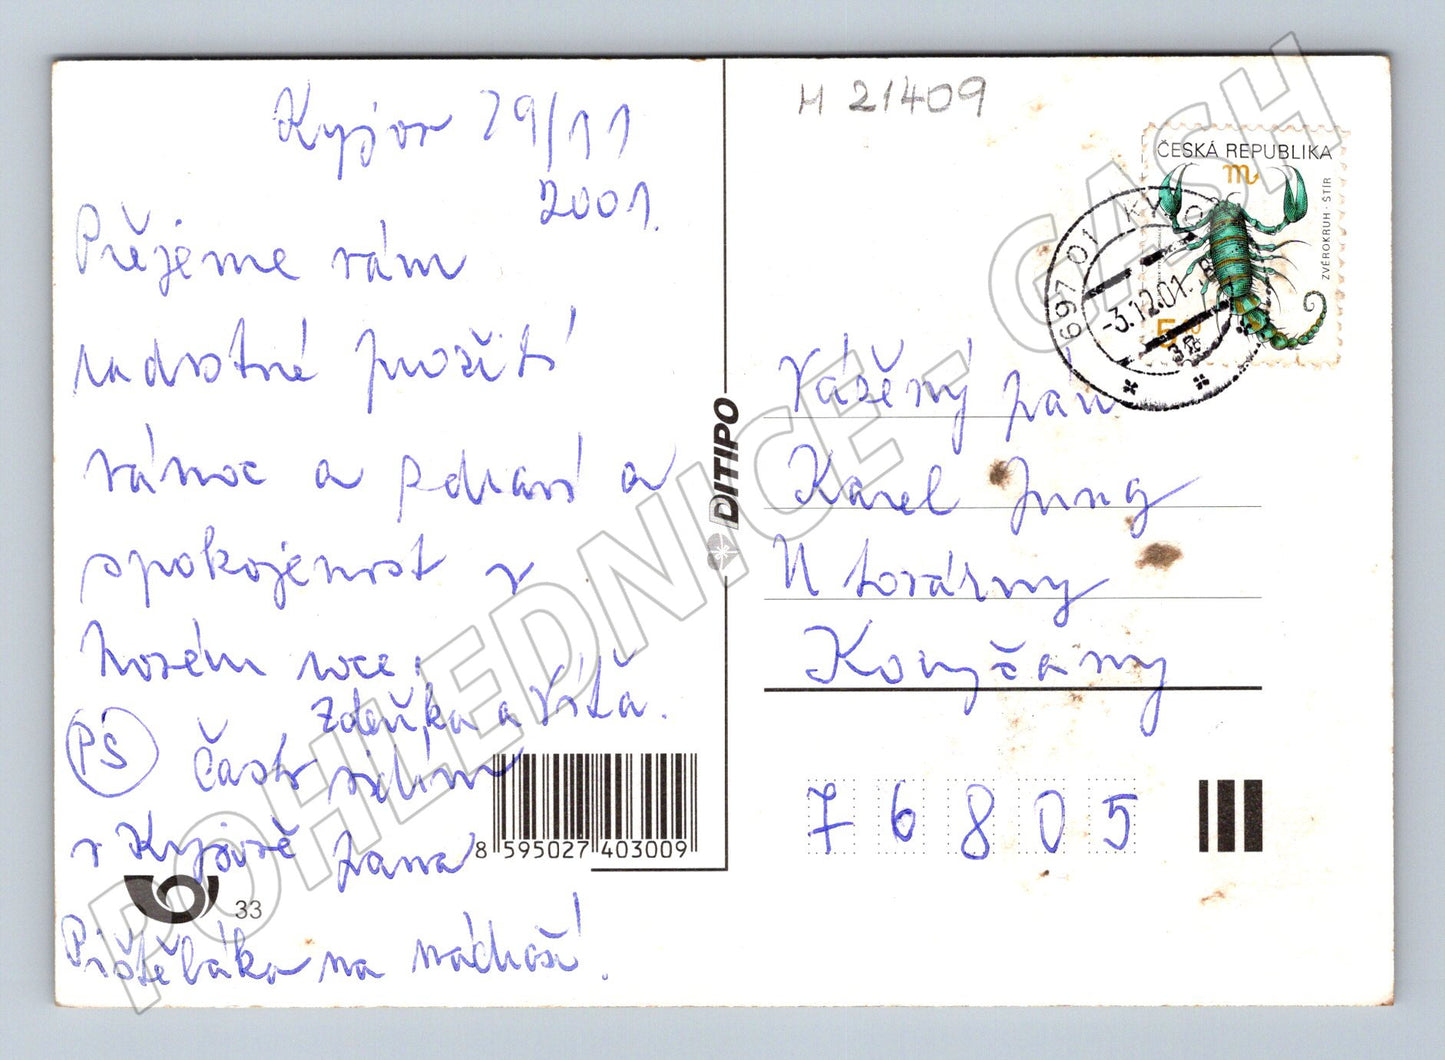 Kyjov 29/11
2001.
Přejeme vám
radostné prožití
vánoc a pohraví a
spokojenost v
Novém roce.
Zdeňka a Víťa.
PS často vidím
v Kyjově pana
Pištěláka na nádraží.
33
8 595027 403009
DITIPO
M 21409
ČESKÁ REPUBLIKA
ZVĚROKRUH - ŠTÍR
697 01 KYJOV
-3.12.01.-8
Vážený pan
Karel Jung
U továrny
Koryčany
76805
POHLEDNICE - CASH